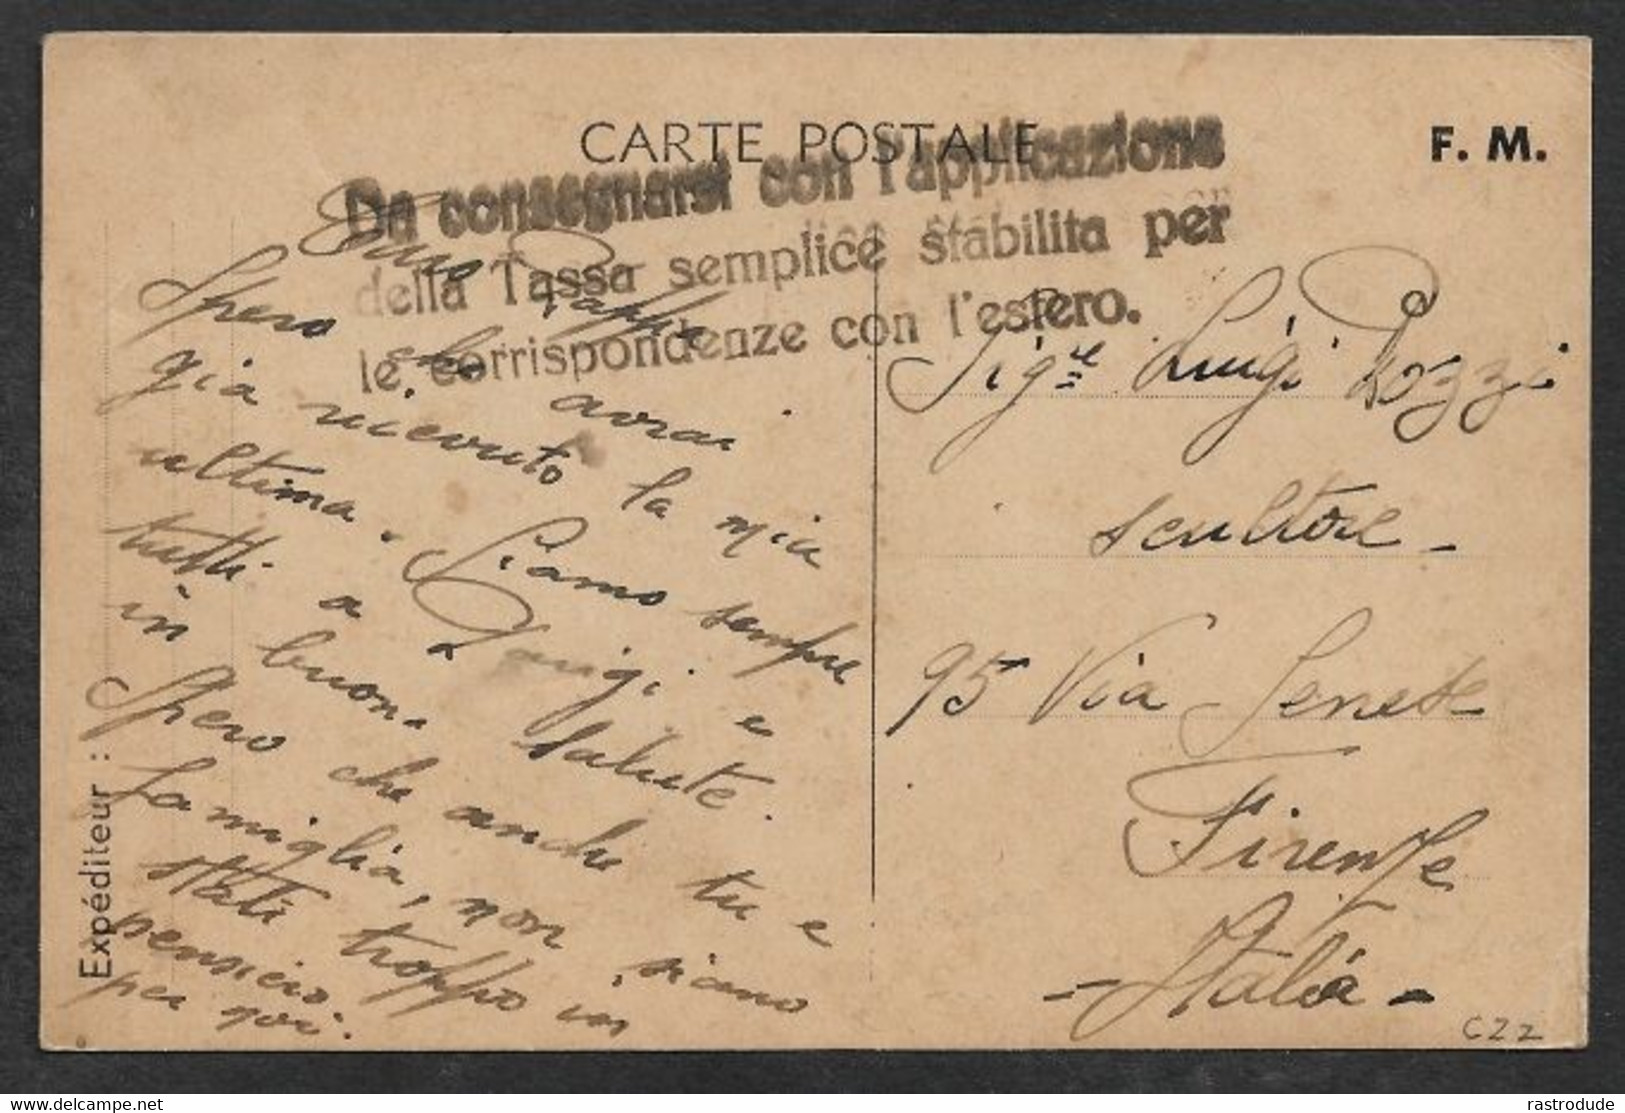 CARTE POSTALE
F. M.
Da consegnarsi con l'applicazione
della Tassa semplice stabilita per
le corrispondenze con l'estero.
Spero che avrai
già ricevuto la mia
ultima. Siamo sempre
tutti a Parigi e
in buona salute.
Spero che anche tu e
famiglia, non siano
stati troppo in
pensiero
per noi.
Expéditeur :
Sigre Luigi Pozzi
scultore -
95 Via Senese
Firenze
- Italia -
C22
delcampe.net
rastrodude